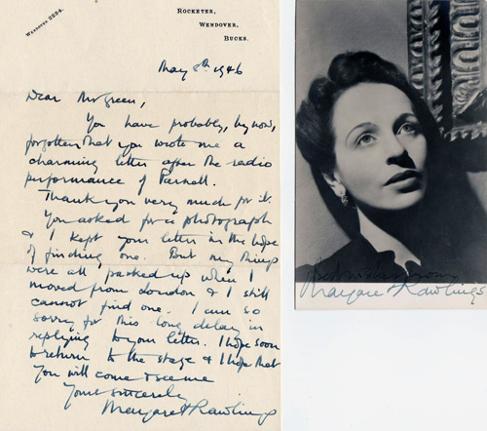 Wendover 2204.
Rocketer,
Wendover,
Bucks.
May 8th 1946
Dear Mr Green,
You have probably, by now,
forgotten that you wrote me a
charming letter after the radio
performance of Parnell.
Thank you very much for it.
You asked for a photograph
& I kept your letter in the hope
of finding one. But my things
were all packed up when I
moved from London & I still
cannot find one. I am so
sorry for this long delay in
replying to your letter. I hope soon
to return to the stage & I hope that
you will come & see me
Yours sincerely
Margaret Rawlings
Best wishes from
Margaret Rawlings